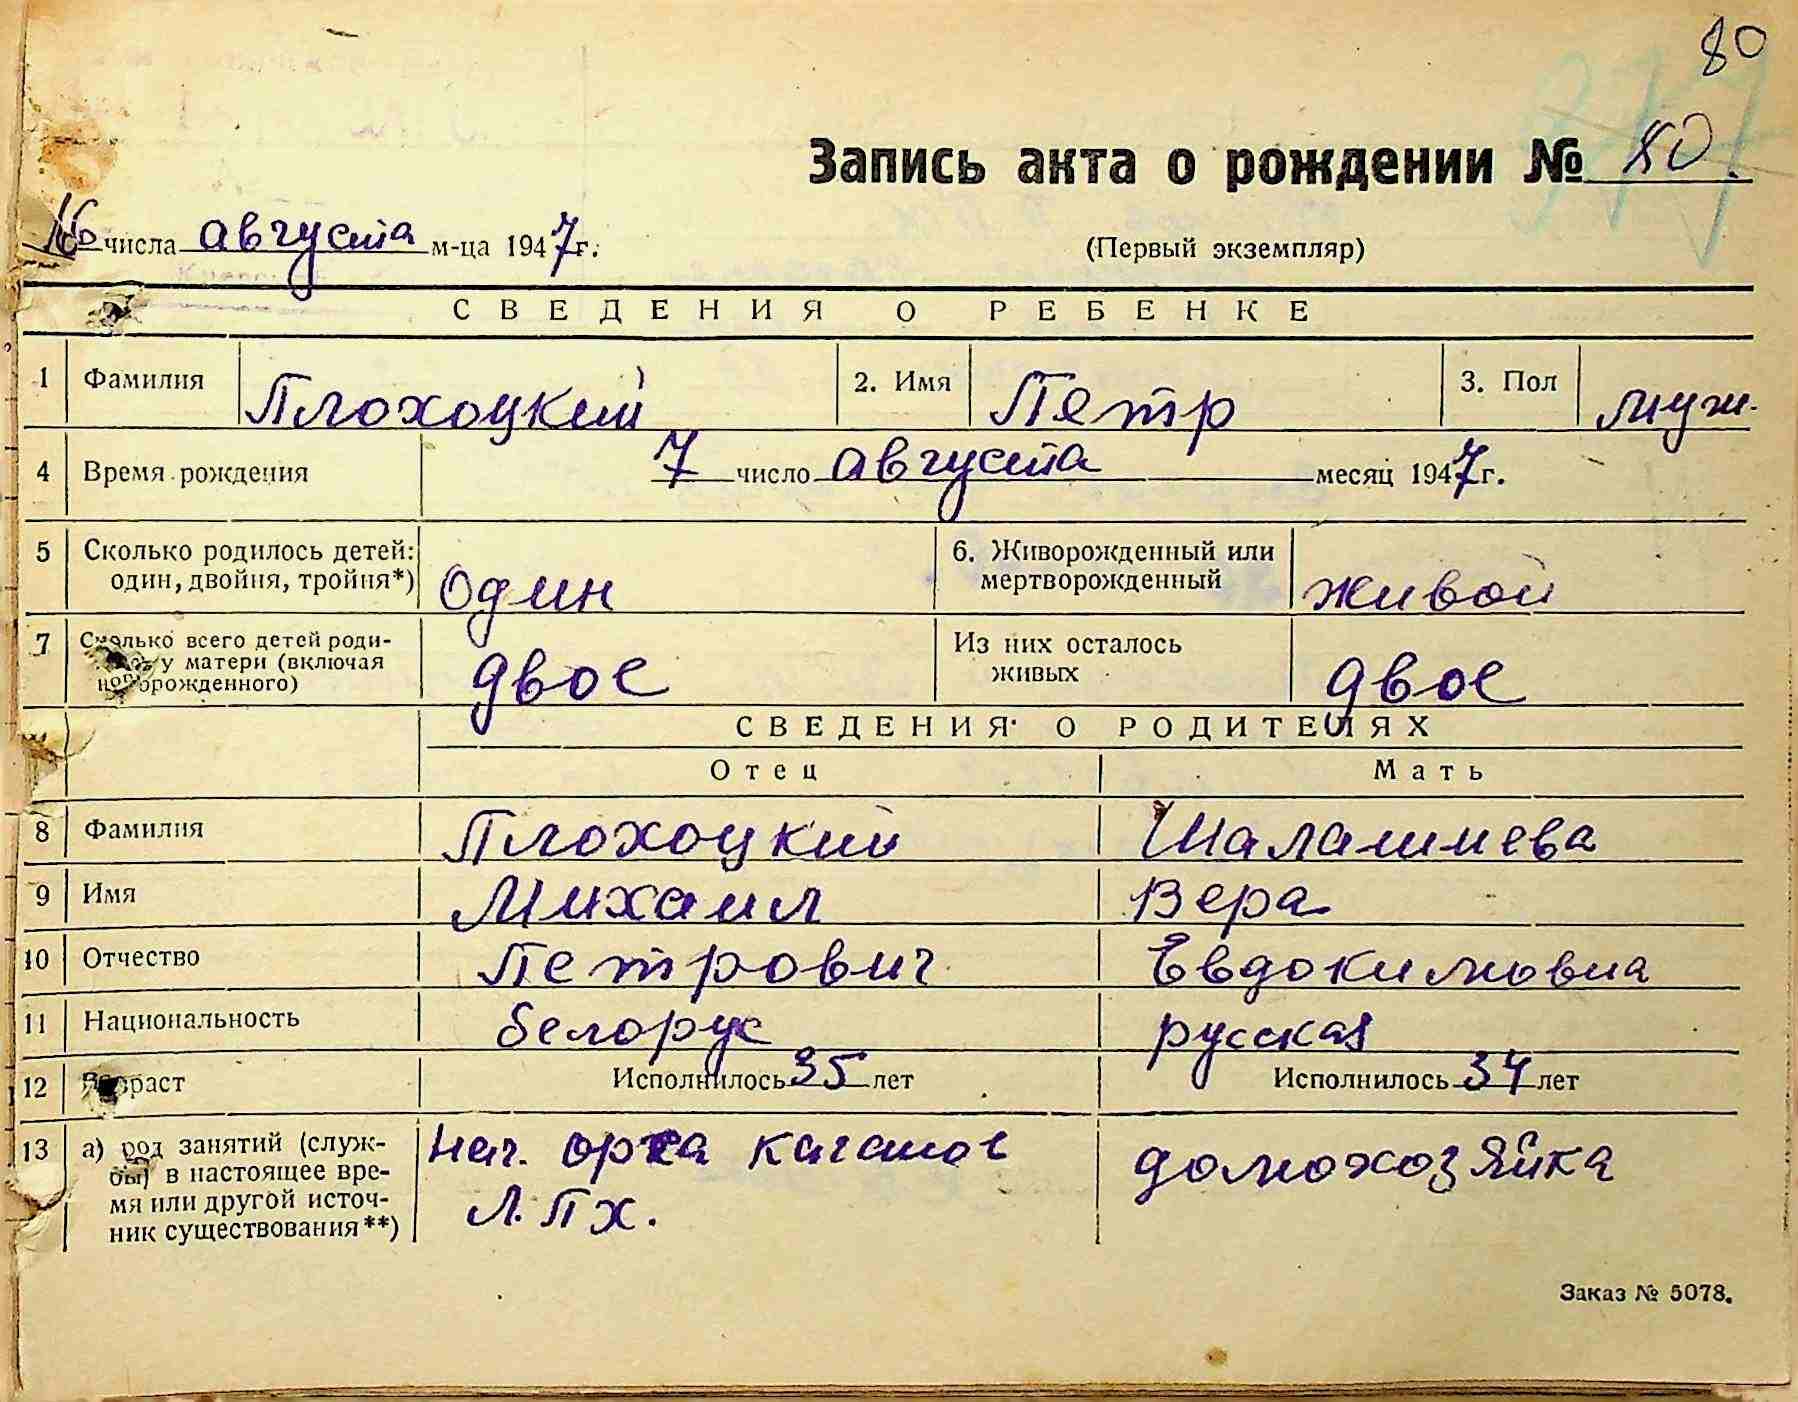 80
277
Запись акта о рождении № 80.
16 числа августа м-ца 1947 г.
(Первый экземпляр)
СВЕДЕНИЯ О РЕБЕНКЕ
1 Фамилия Плохоцкий 2. Имя Петр 3. Пол муж.
4 Время рождения 7 число августа месяц 1947 г.
5 Сколько родилось детей: 6. Живорожденный или
один, двойня, тройня*) Один мертворожденный живой
7 Сколько всего детей роди- Из них осталось
у матери (включая двое живых двое
новорожденного)
СВЕДЕНИЯ О РОДИТЕЛЯХ
Отец Мать
8 Фамилия Плохоцкий Шалашнева
9 Имя Михаил Вера
10 Отчество Петрович Евдокимовна
11 Национальность белорус русская
12 Возраст Исполнилось 35 лет Исполнилось 34 лет
13 а) род занятий (служ- нач. орса
бы) в настоящее вре- домохозяйка
мя или другой источ- Л.П.Х.
ник существования**)
Заказ № 5078.